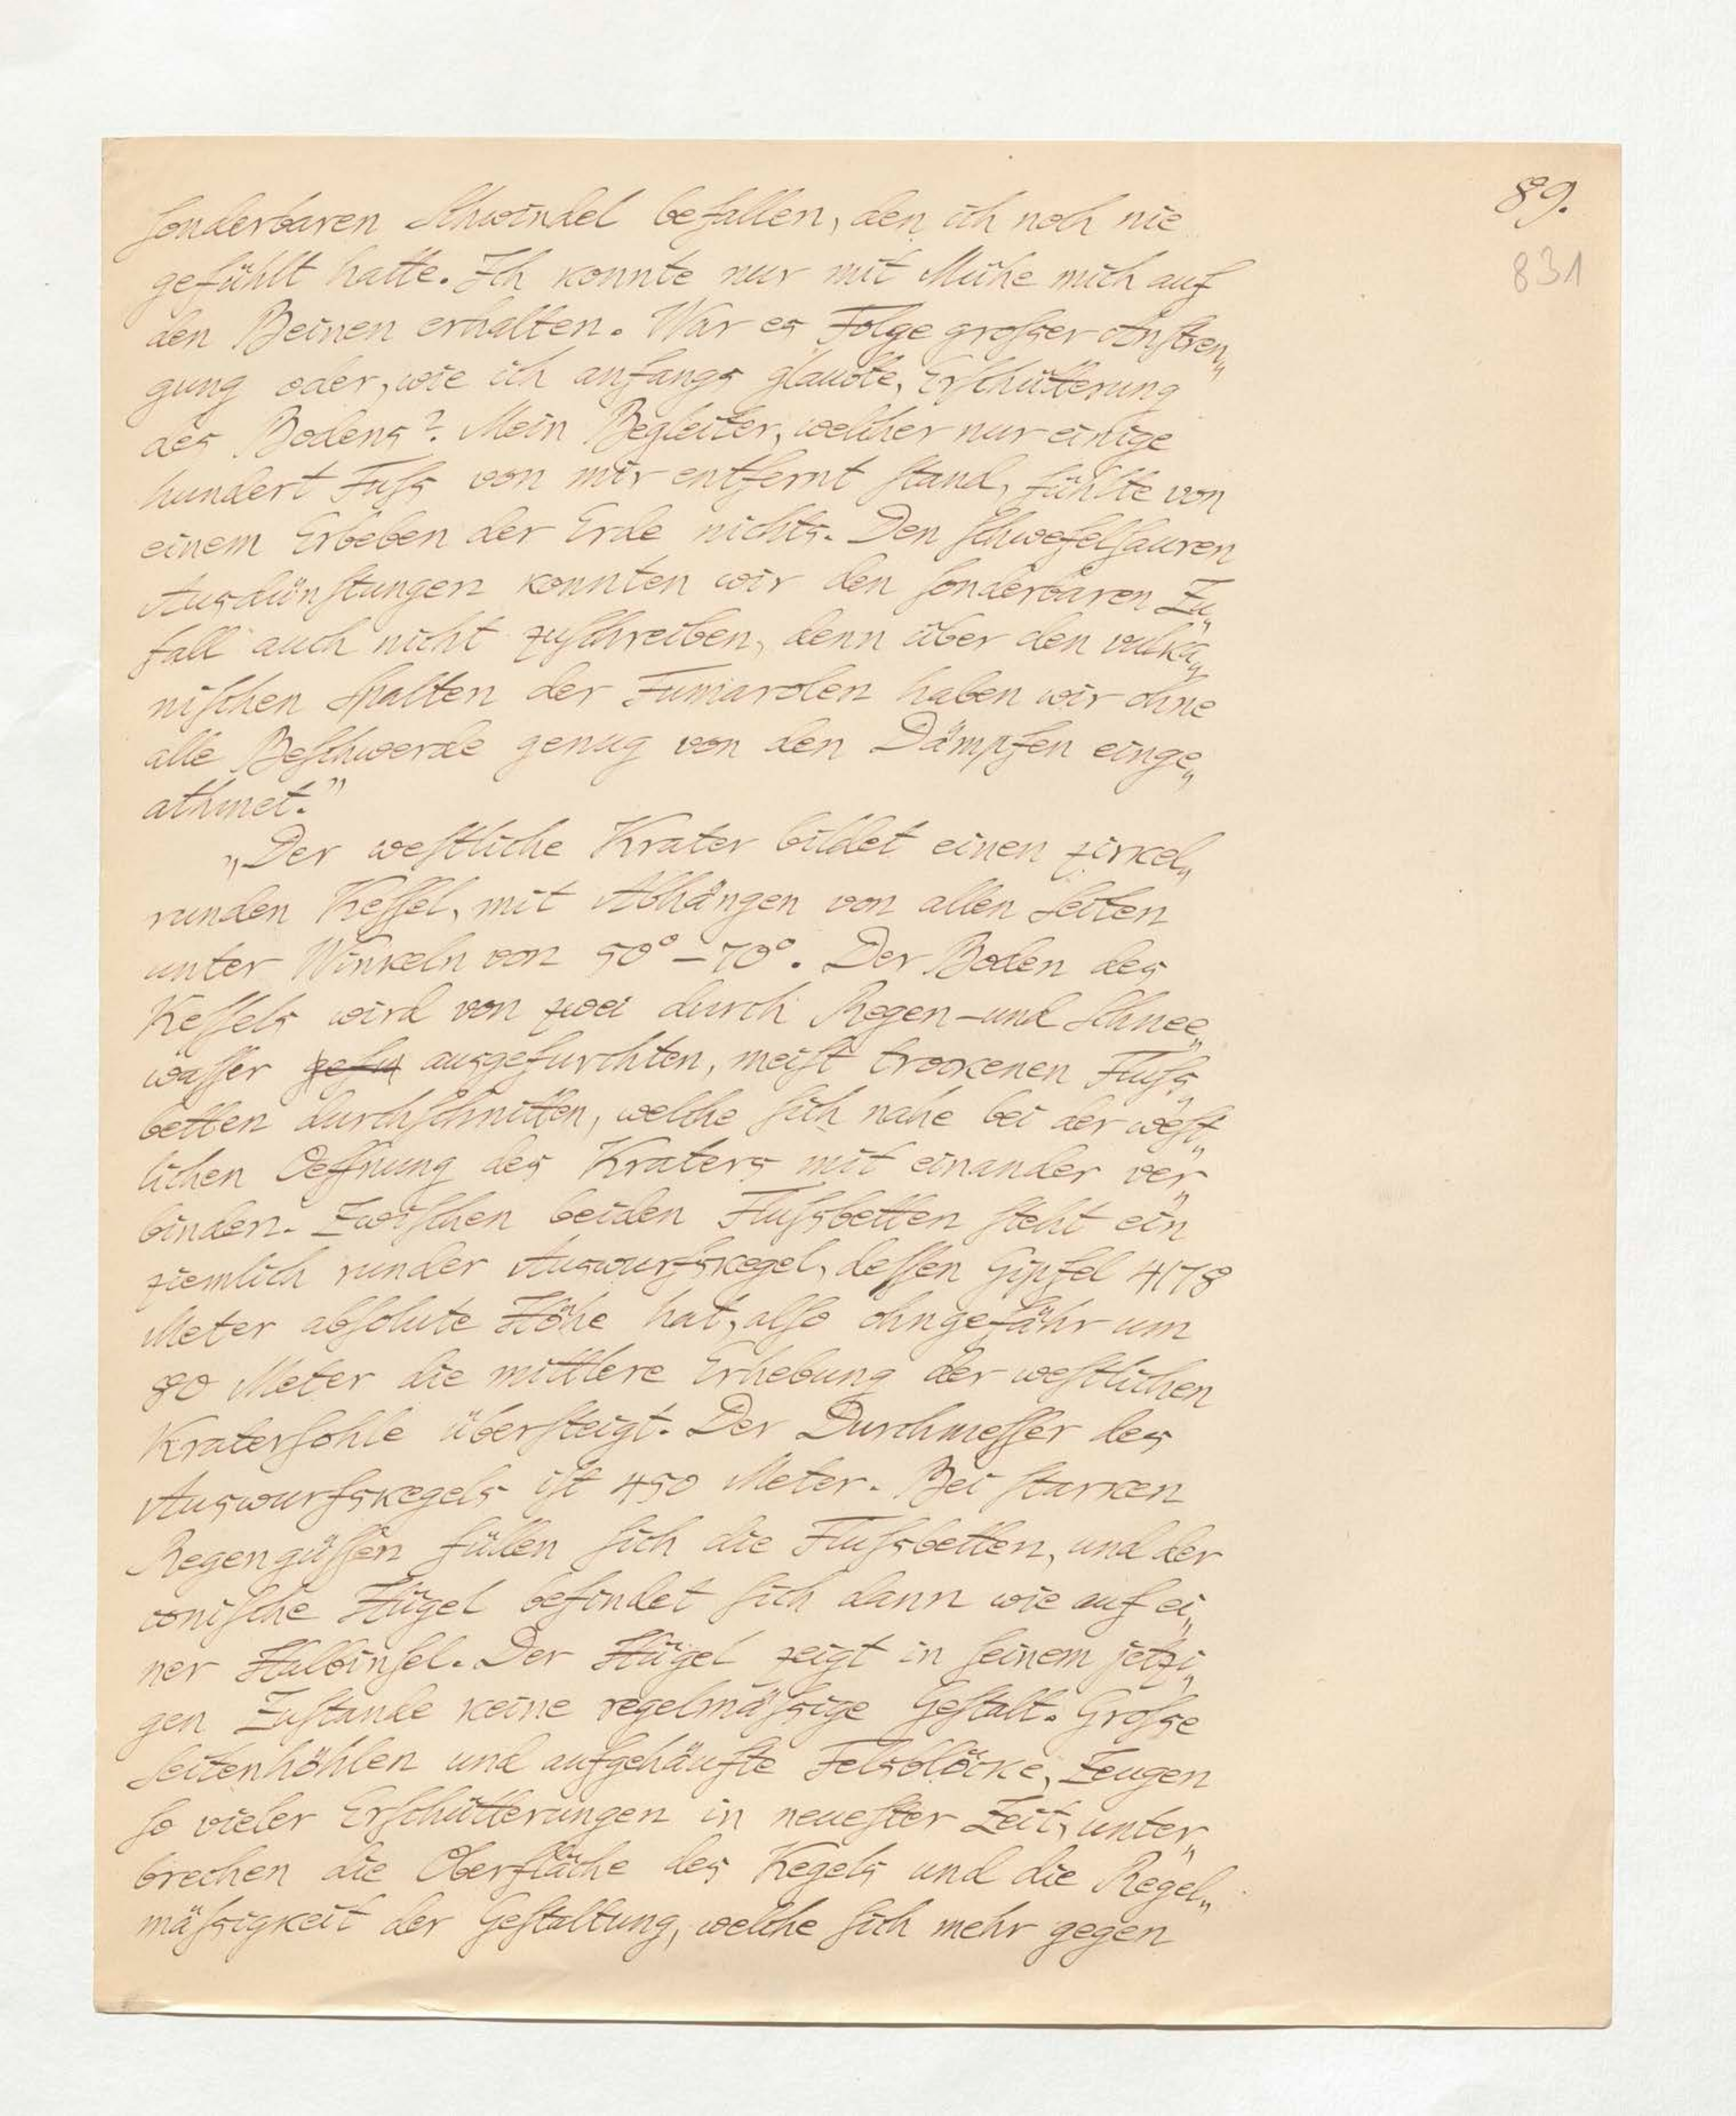 89.
831
sonderbaren Schwindel befallen, den ich noch nie
gefühlt hatte. Ich konnte nur mit Mühe mich auf
den Beinen erhalten. War es Folge grosser Anstren„
gung oder, wie ich anfangs glaubte, Erschütterung
des Bodens?. Mein Begleiter, welcher nur einige
hundert Fuss von mir entfernt stand, fühlte von
einem Erbeben der Erde nichts. Den schwefelsauren
Ausdünstungen konnten wir den sonderbaren Zu„
fall auch nicht zuschreiben, denn über den vulka„
nischen Spalten der Fumarolen haben wir ohne
alle Beschwerde genug von den Dämpfen einge„
athmet."
„Der westliche Krater bildet einen zirkel„
runden Kessel, mit Abhängen von allen Seiten
unter Winkeln von 50° – 70°. Der Boden des
Kessels wird von zwei durch Regen- und Schnee„
wasser ausgefurchten, meist trockenen Fluss„
betten durchschnitten, welche sich nahe bei der west„
lichen Oeffnung des Kraters mit einander ver„
binden. Zwischen beiden Flussbetten steht ein
ziemlich runder Auswurfskegel, dessen Gipfel 4178
Meter absolute Höhe hat, also ohngefähr um
80 Meter die mittlere Erhebung der westlichen
Kratersohle übersteigt. Der Durchmesser des
Auswurfskegels ist 450 Meter. Bei starken
Regengüssen füllen sich die Flussbetten, und der
conische Hügel befindet sich dann wie auf ei„
ner Halbinsel. Der Hügel zeigt in seinem jetzi„
gen Zustande keine regelmässige Gestalt. Grosse
Seitenhöhlen und aufgehäufte Felsblöcke, Zeugen
so vieler Erschütterungen in neuester Zeit, unter„
brechen die Oberfläche des Kegels und die Regel„
mässigkeit der Gestaltung, welche sich mehr gegen